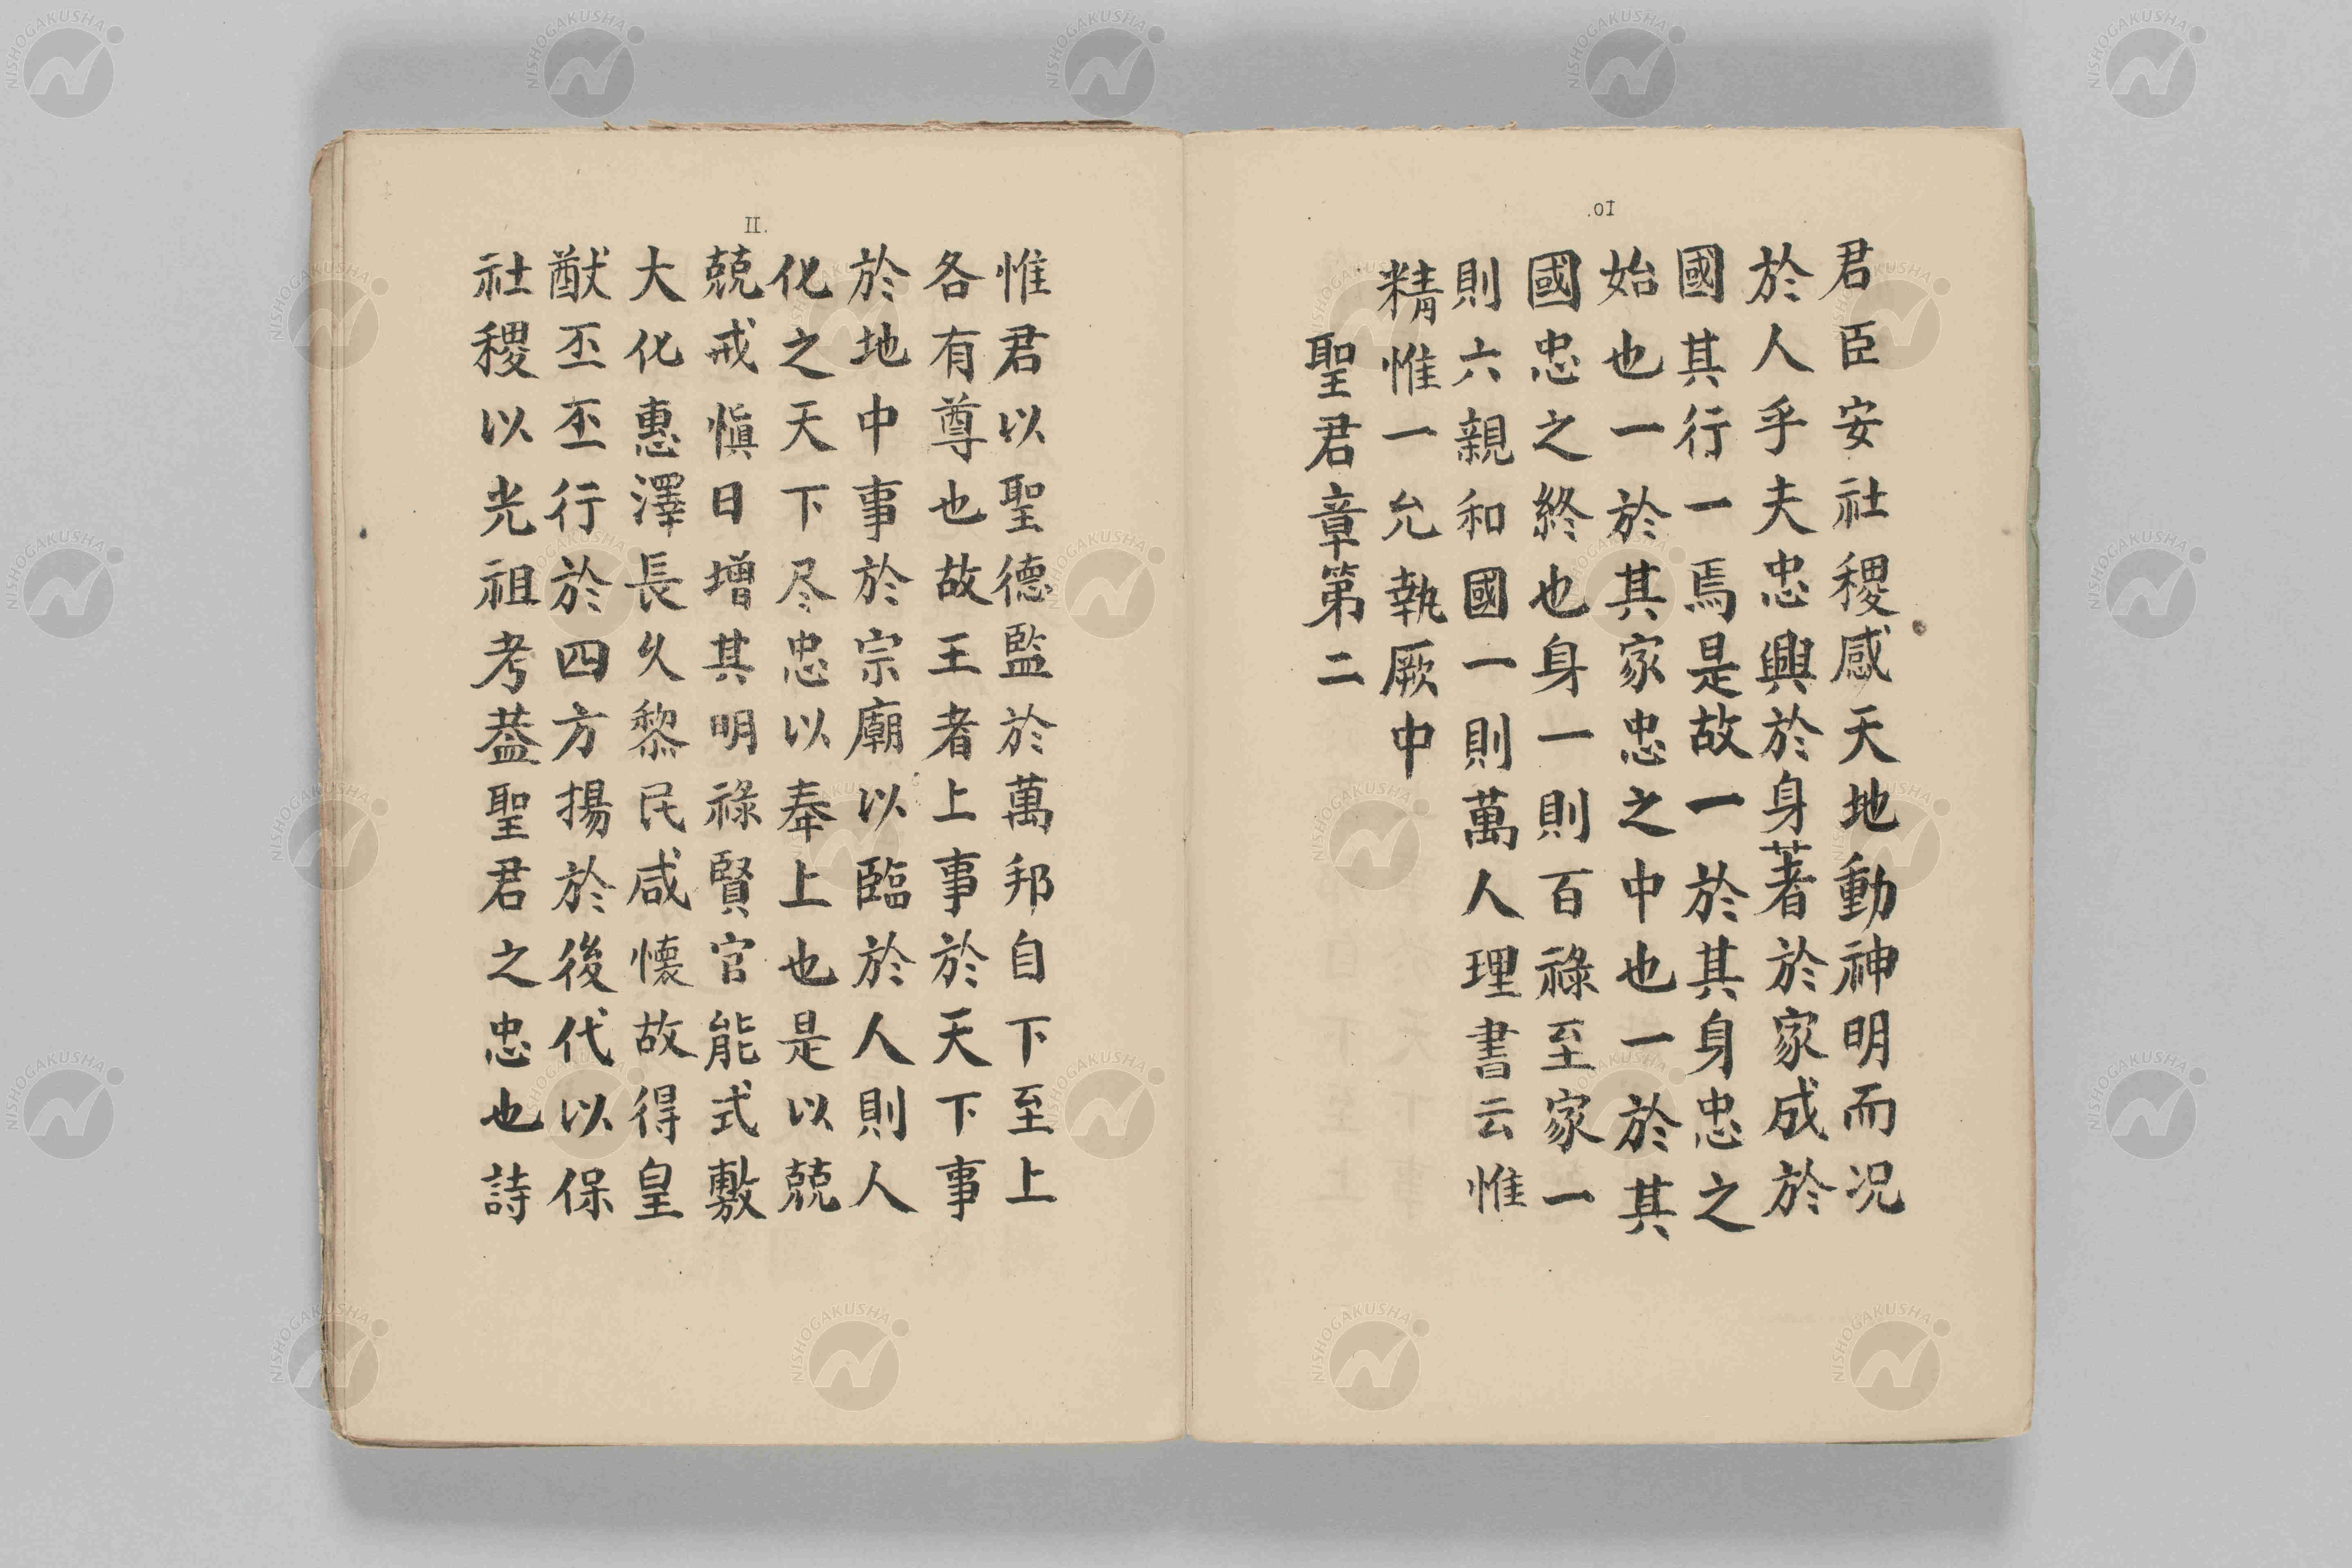 .oI
君臣安社稷感天地動神明而况
於人乎夫忠興於身著於家成於
國其行一焉是故一於其身忠之
始也一於其家忠之中也一於其
國忠之終也身一則百祿至家一
則六親和國一則萬人理書云惟
精惟一允執厥中
聖君章第二
II.
惟君以聖德監於萬邦自下至上
各有尊也故王者上事於天下事
於地中事於宗廟以臨於人則人
化之天下尽忠以奉上也是以兢
兢戒慎日增其明祿賢官能式敷
大化惠澤長久黎民咸懐故得皇
猷丕丕行於四方揚於後代以保
社稷以光祖考葢聖君之忠也詩
NISHOGAKUSHA